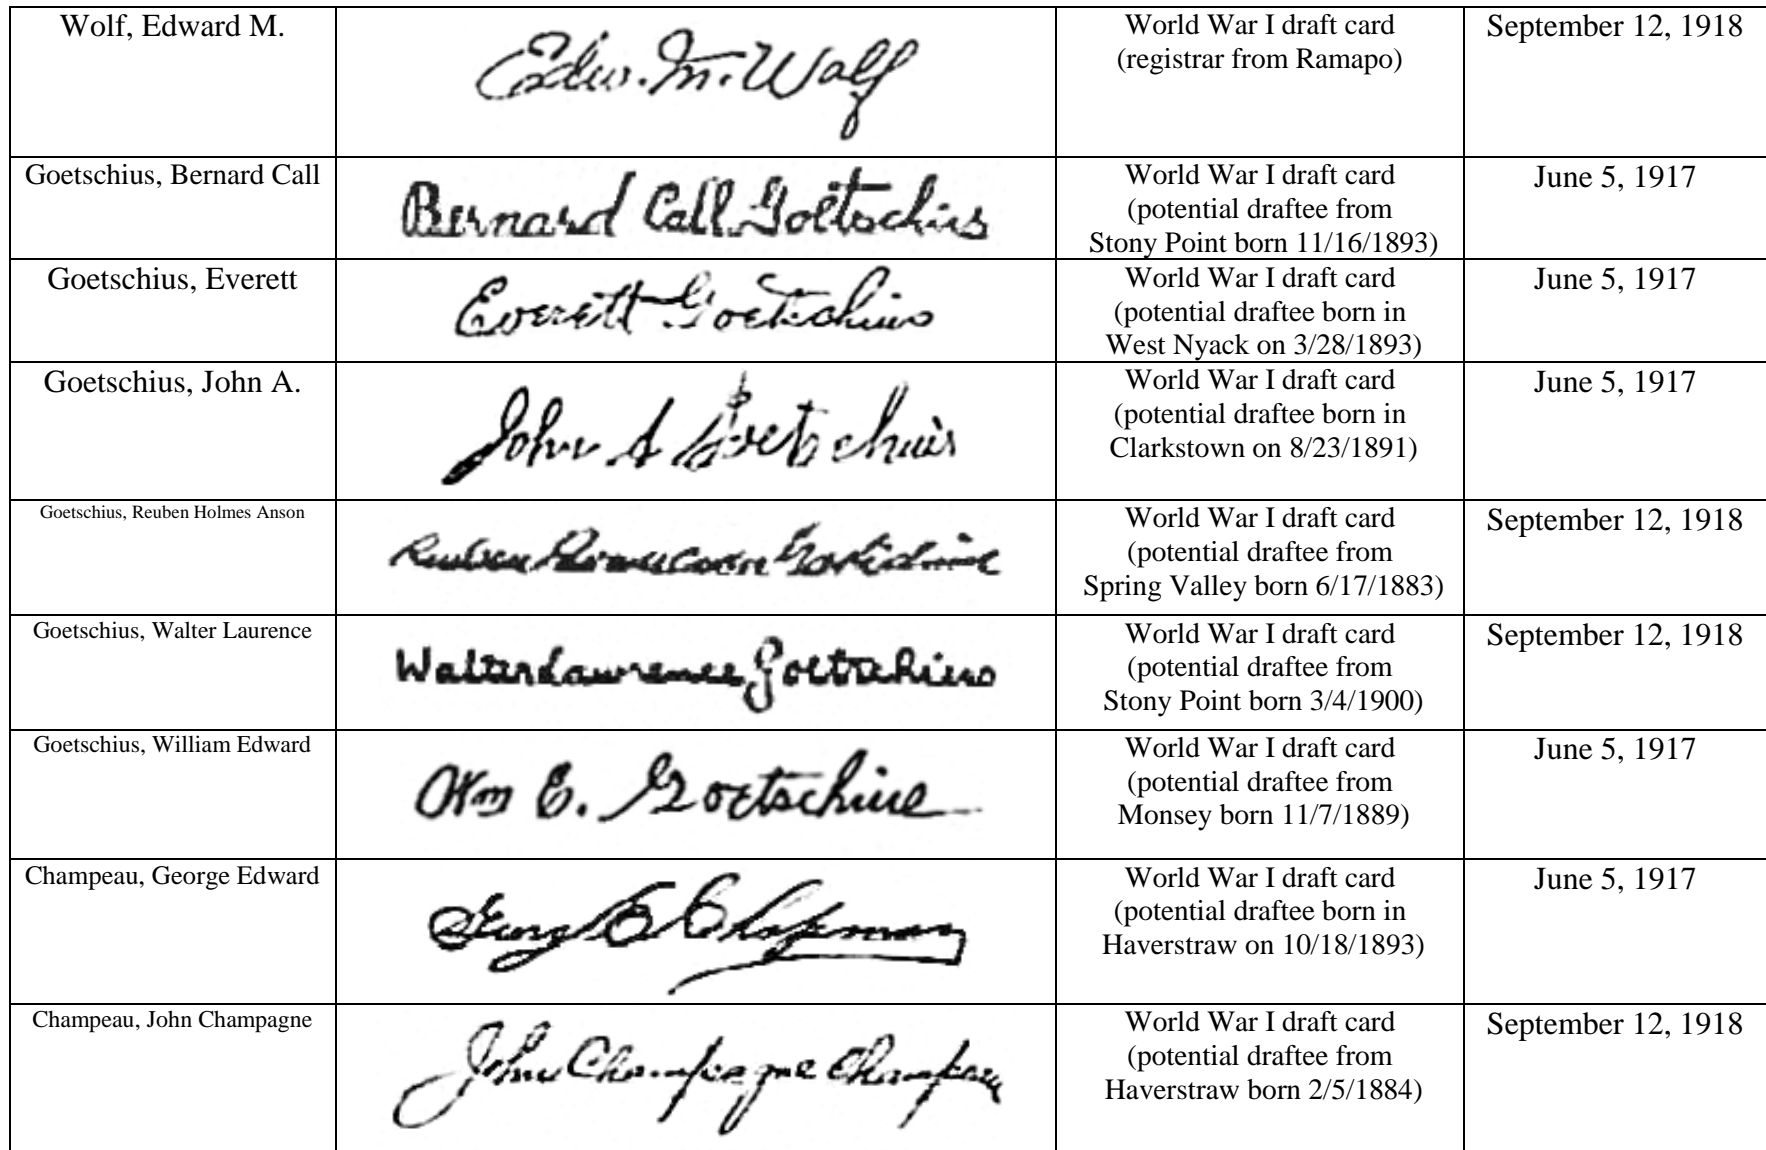 Wolf, Edward M.
Edw. M. Wolf
World War I draft card
(registrar from Ramapo)
September 12, 1918
Goetschius, Bernard Call
Bernard Call Goetschius
World War I draft card
(potential draftee from
Stony Point born 11/16/1893)
June 5, 1917
Goetschius, Everett
Everett Goetschius
World War I draft card
(potential draftee born in
West Nyack on 3/28/1893)
June 5, 1917
Goetschius, John A.
John A Goetschius
World War I draft card
(potential draftee born in
Clarkstown on 8/23/1891)
June 5, 1917
Goetschius, Reuben Holmes Anson
Reuben
World War I draft card
(potential draftee from
Spring Valley born 6/17/1883)
September 12, 1918
Goetschius, Walter Laurence
Walter Lawrence Goetschius
World War I draft card
(potential draftee from
Stony Point born 3/4/1900)
September 12, 1918
Goetschius, William Edward
Wm E. Goetschius
World War I draft card
(potential draftee from
Monsey born 11/7/1889)
June 5, 1917
Champeau, George Edward
George E Chapman
World War I draft card
(potential draftee born in
Haverstraw on 10/18/1893)
June 5, 1917
Champeau, John Champagne
John Champagne Champeau
World War I draft card
(potential draftee from
Haverstraw born 2/5/1884)
September 12, 1918